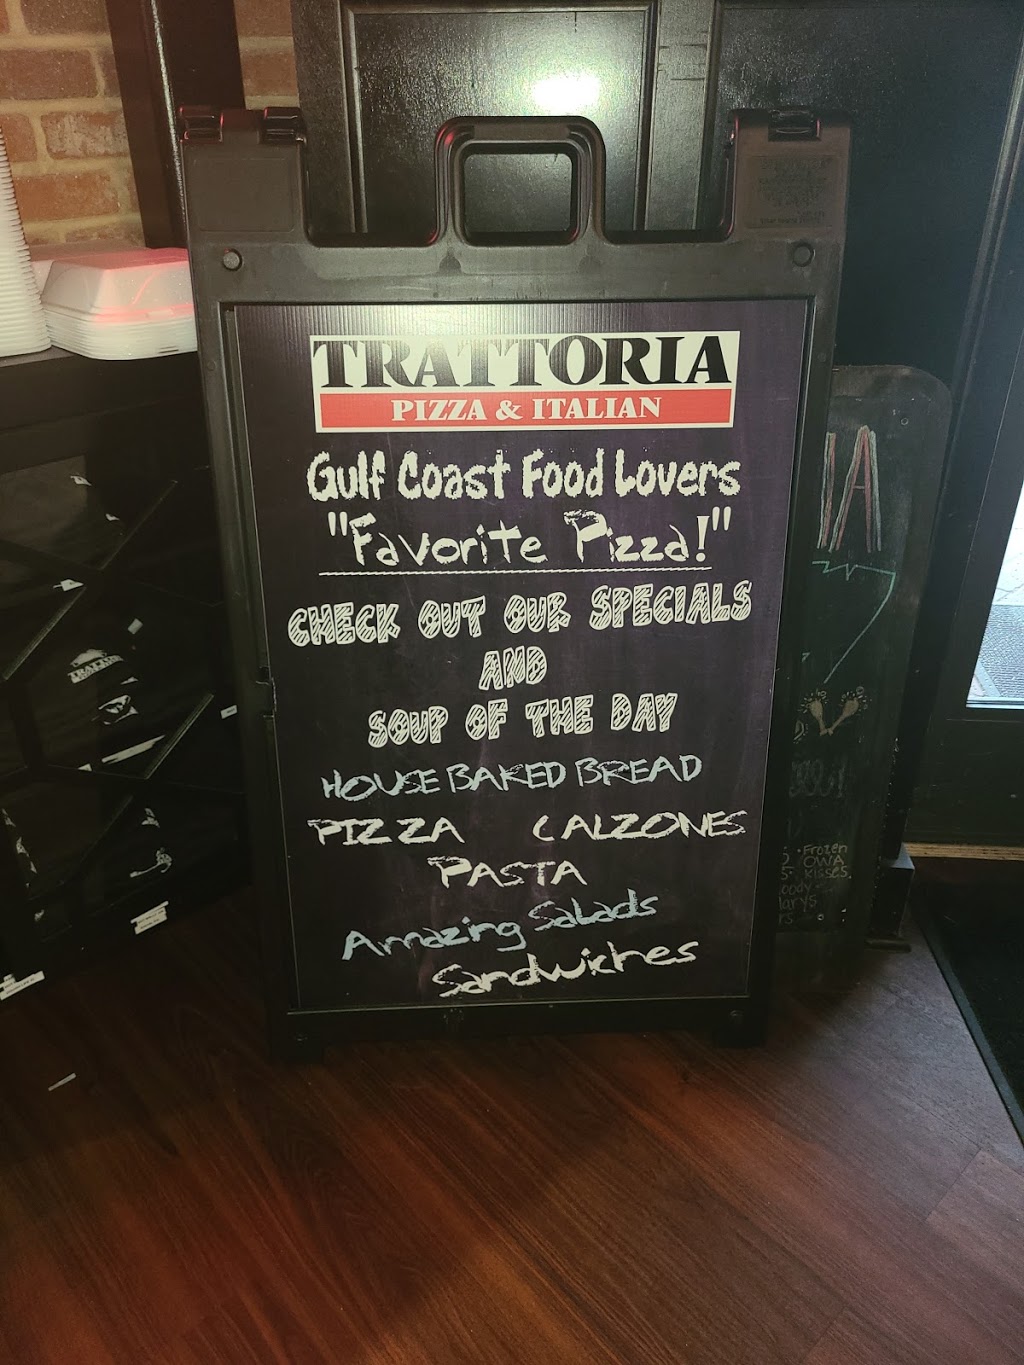 TRATTORIA
PIZZA & ITALIAN
Gulf Coast Food Lovers
"Favorite Pizza!"
CHECK OUT OUR SPECIALS
AND
SOUP OF THE DAY
HOUSE BAKED BREAD
PIZZA CALZONES
PASTA
Amazing Salads
Sandwiches
IA
• Frozen
OWA
Kisses